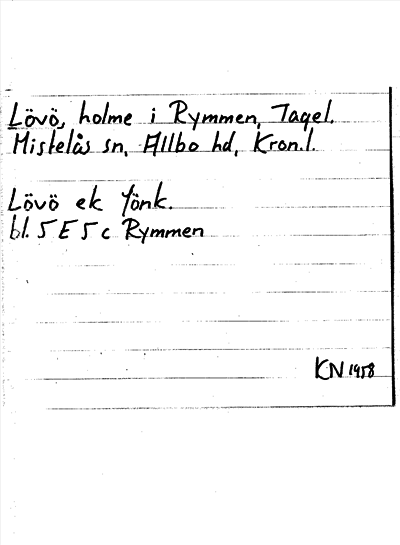 Lövö, holme i Rymmen, Tagel.
Mistelås sn, Allbo hd, Kron.l.
Lövö ek fönk.
bl. 5 E 5 c Rymmen
KN 1958